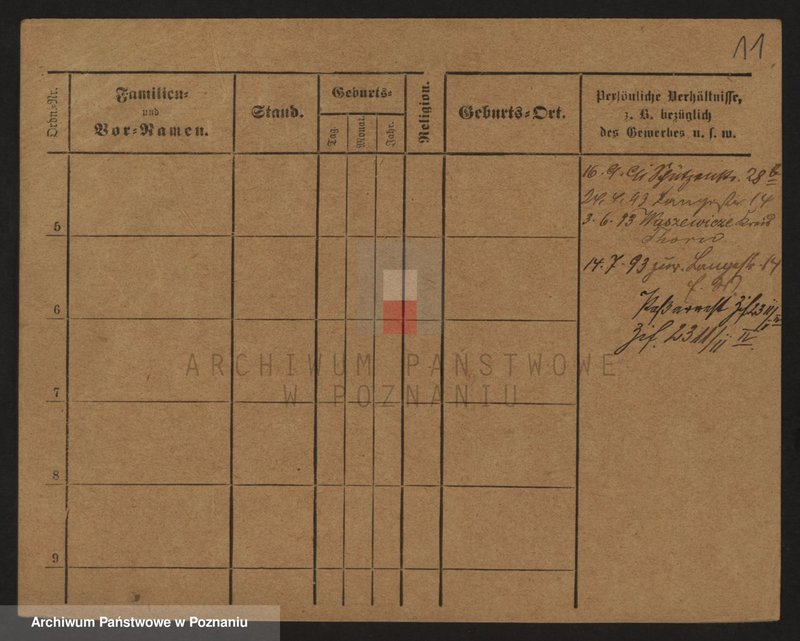 11
Ordn.-Nr.
Familien-
und
Vor-Namen.
Stand.
Geburts-
Tag.
Monat.
Jahr.
Religion.
Geburts-Ort.
Persönliche Verhältnisse,
z. B. bezüglich
des Gewerbes u. s. w.
16. 9. Schützenstr. 28
93 Langestr. 14
3. 6. 93 Kreis
Thorn
14. 7. 93 zur. Langestr. 14
Zif. 23
Zif. 23 II IV.
5
6
7
8
9
ARCHIWUM PAŃSTWOWE
W POZNANIU
Archiwum Państwowe w Poznaniu